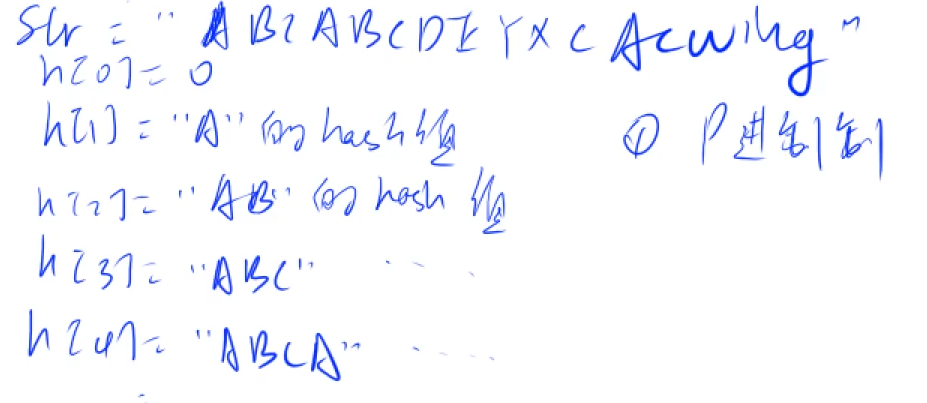 str = "ABCABCDEYXCAcwing"
h[0] = 0
h[1] = "A" 的 hash 值
① P进制制
h[2] = "AB" 的 hash 值
h[3] = "ABC" ....
h[4] = "ABCA" .....